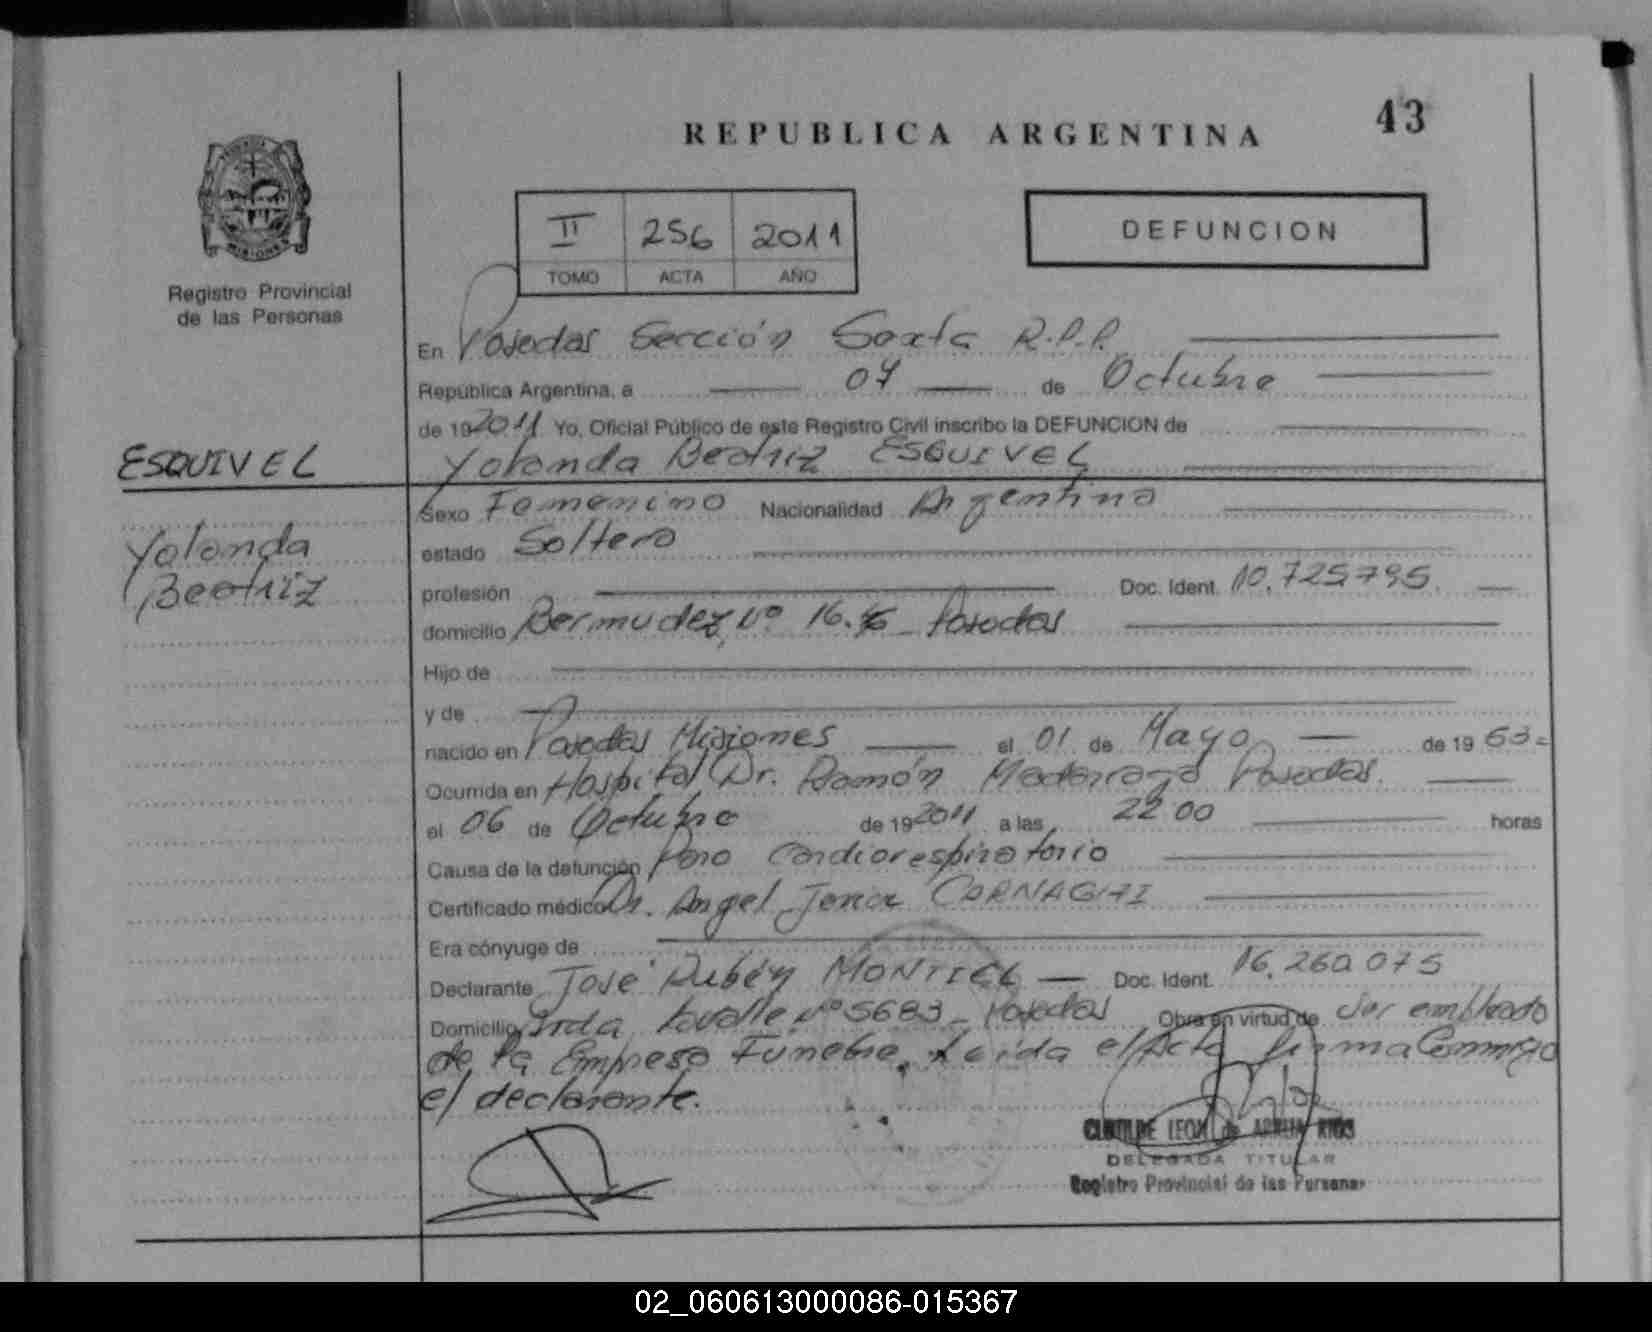 43
REPUBLICA ARGENTINA
II 256 2011
TOMO ACTA AÑO
DEFUNCION
Registro Provincial
de las Personas
En Posadas Sección Sexta R.P.P.
República Argentina, a 07 de Octubre
de 192011 Yo, Oficial Público de este Registro Civil inscribo la DEFUNCION de
ESQUIVEL
Yolanda Beatriz ESQUIVEL
Yolanda
Beatriz
Sexo Femenino Nacionalidad Argentina
estado Soltera
profesión Doc. Ident. 10.725795
domicilio Bermudez Nº Posadas
Hijo de
y de
nacido en Posadas Misiones el 01 de Mayo de 19 63
Ocurrida en Hospital Dr. Ramón Madariaga Posadas.
el 06 de Octubre de 192011 a las 22 00 horas
Causa de la defunción Paro Cardiorespiratorio
Certificado médico Dr. Angel
Era cónyuge de
Declarante José Rubén MONTIEL Doc. Ident. 16.260.075
Domicilio Avda Lavalle Nº 5683 - Posadas Obra en virtud de Ser empleado
de la Empresa Funebre. Leida el Acta firma Conmigo
el declarante.
CLOTILDE LEON de
DELEGADA TITULAR
Registro Provincial de las Personas
02_060613000086-015367